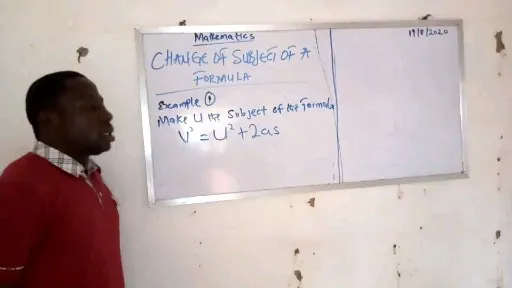 Mathematics
19/8/2020
CHANGE OF SUBJECT OF A
FORMULA
Example ①
Make U the Subject of the Formula
V² = U² + 2as